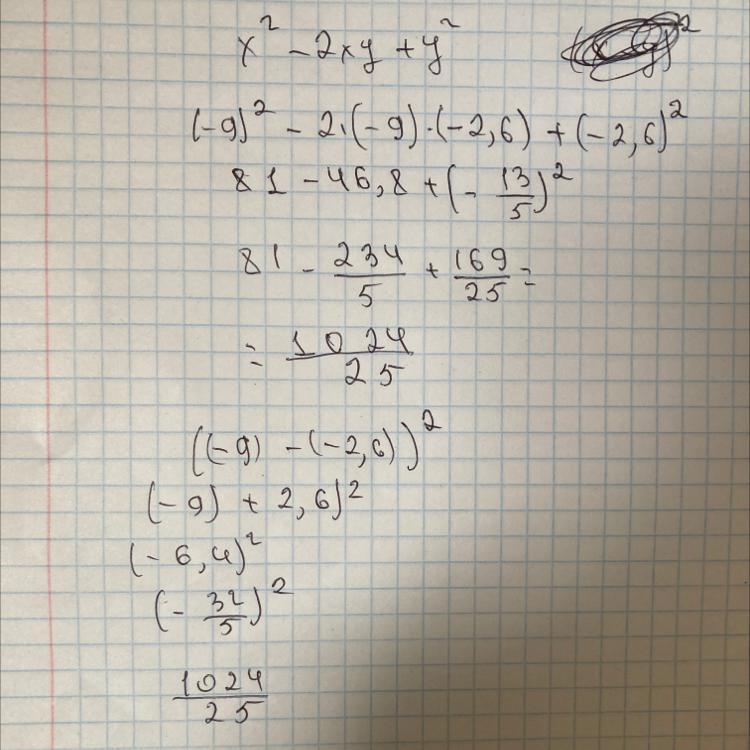 x² - 2xy + y²
(-9)² - 2·(-9)·(-2,6) + (-2,6)²
81 - 46,8 + (- 13/5)²
81 - 234/5 + 169/25 =
= 1024/25
((-9) - (-2,6))²
(-9) + 2,6)²
(-6,4)²
(- 32/5)²
1024/25